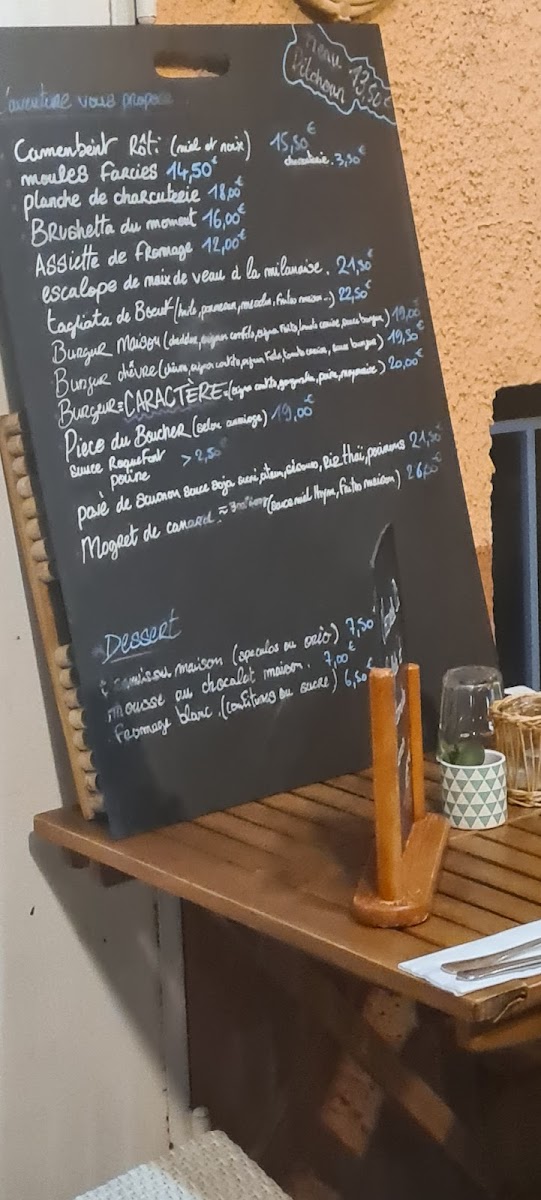 Menu
Pitchoun 13,50€
l'aventure vous propose
Camembert Rôti (miel et noix) 15,50€
charcuterie. 3,50€
moules Farcies 14,50€
planche de charcuterie 18,00€
Brushetta du moment 16,00€
Assiette de Fromage 12,00€
escalope de noix de veau à la milanaise. 21,50€
tagliata de Boeuf (huile, parmesan, mesclun, frites maison..) 22,50€
Burgur Maison (cheddar, oignon confits, oignon frits, tomate cerise, sauce burgur) 19,00€
Burgur chèvre (chèvre, oignon confits, oignon frits, tomate cerise, sauce burgur) 19,50€
Burgur = CARACTÈRE = (oignon confits, gorgonzola, poire, mayonnaise) 20,00€
Piece du Boucher (selon arrivage) 19,00€
sauce Roquefort
poivre > 2,50€
pavé de saumon sauce soja sucré, citron, sésames, Riz thaï, poivrons 21,50€
Magret de canard ≈ (sauce miel thym, frites maison) 26,00€
Dessert
tiramissu maison (speculos ou oréo) 7,50€
mousse au chocolat maison. 7,00€
fromage blanc. (confitures ou sucre) 6,50€